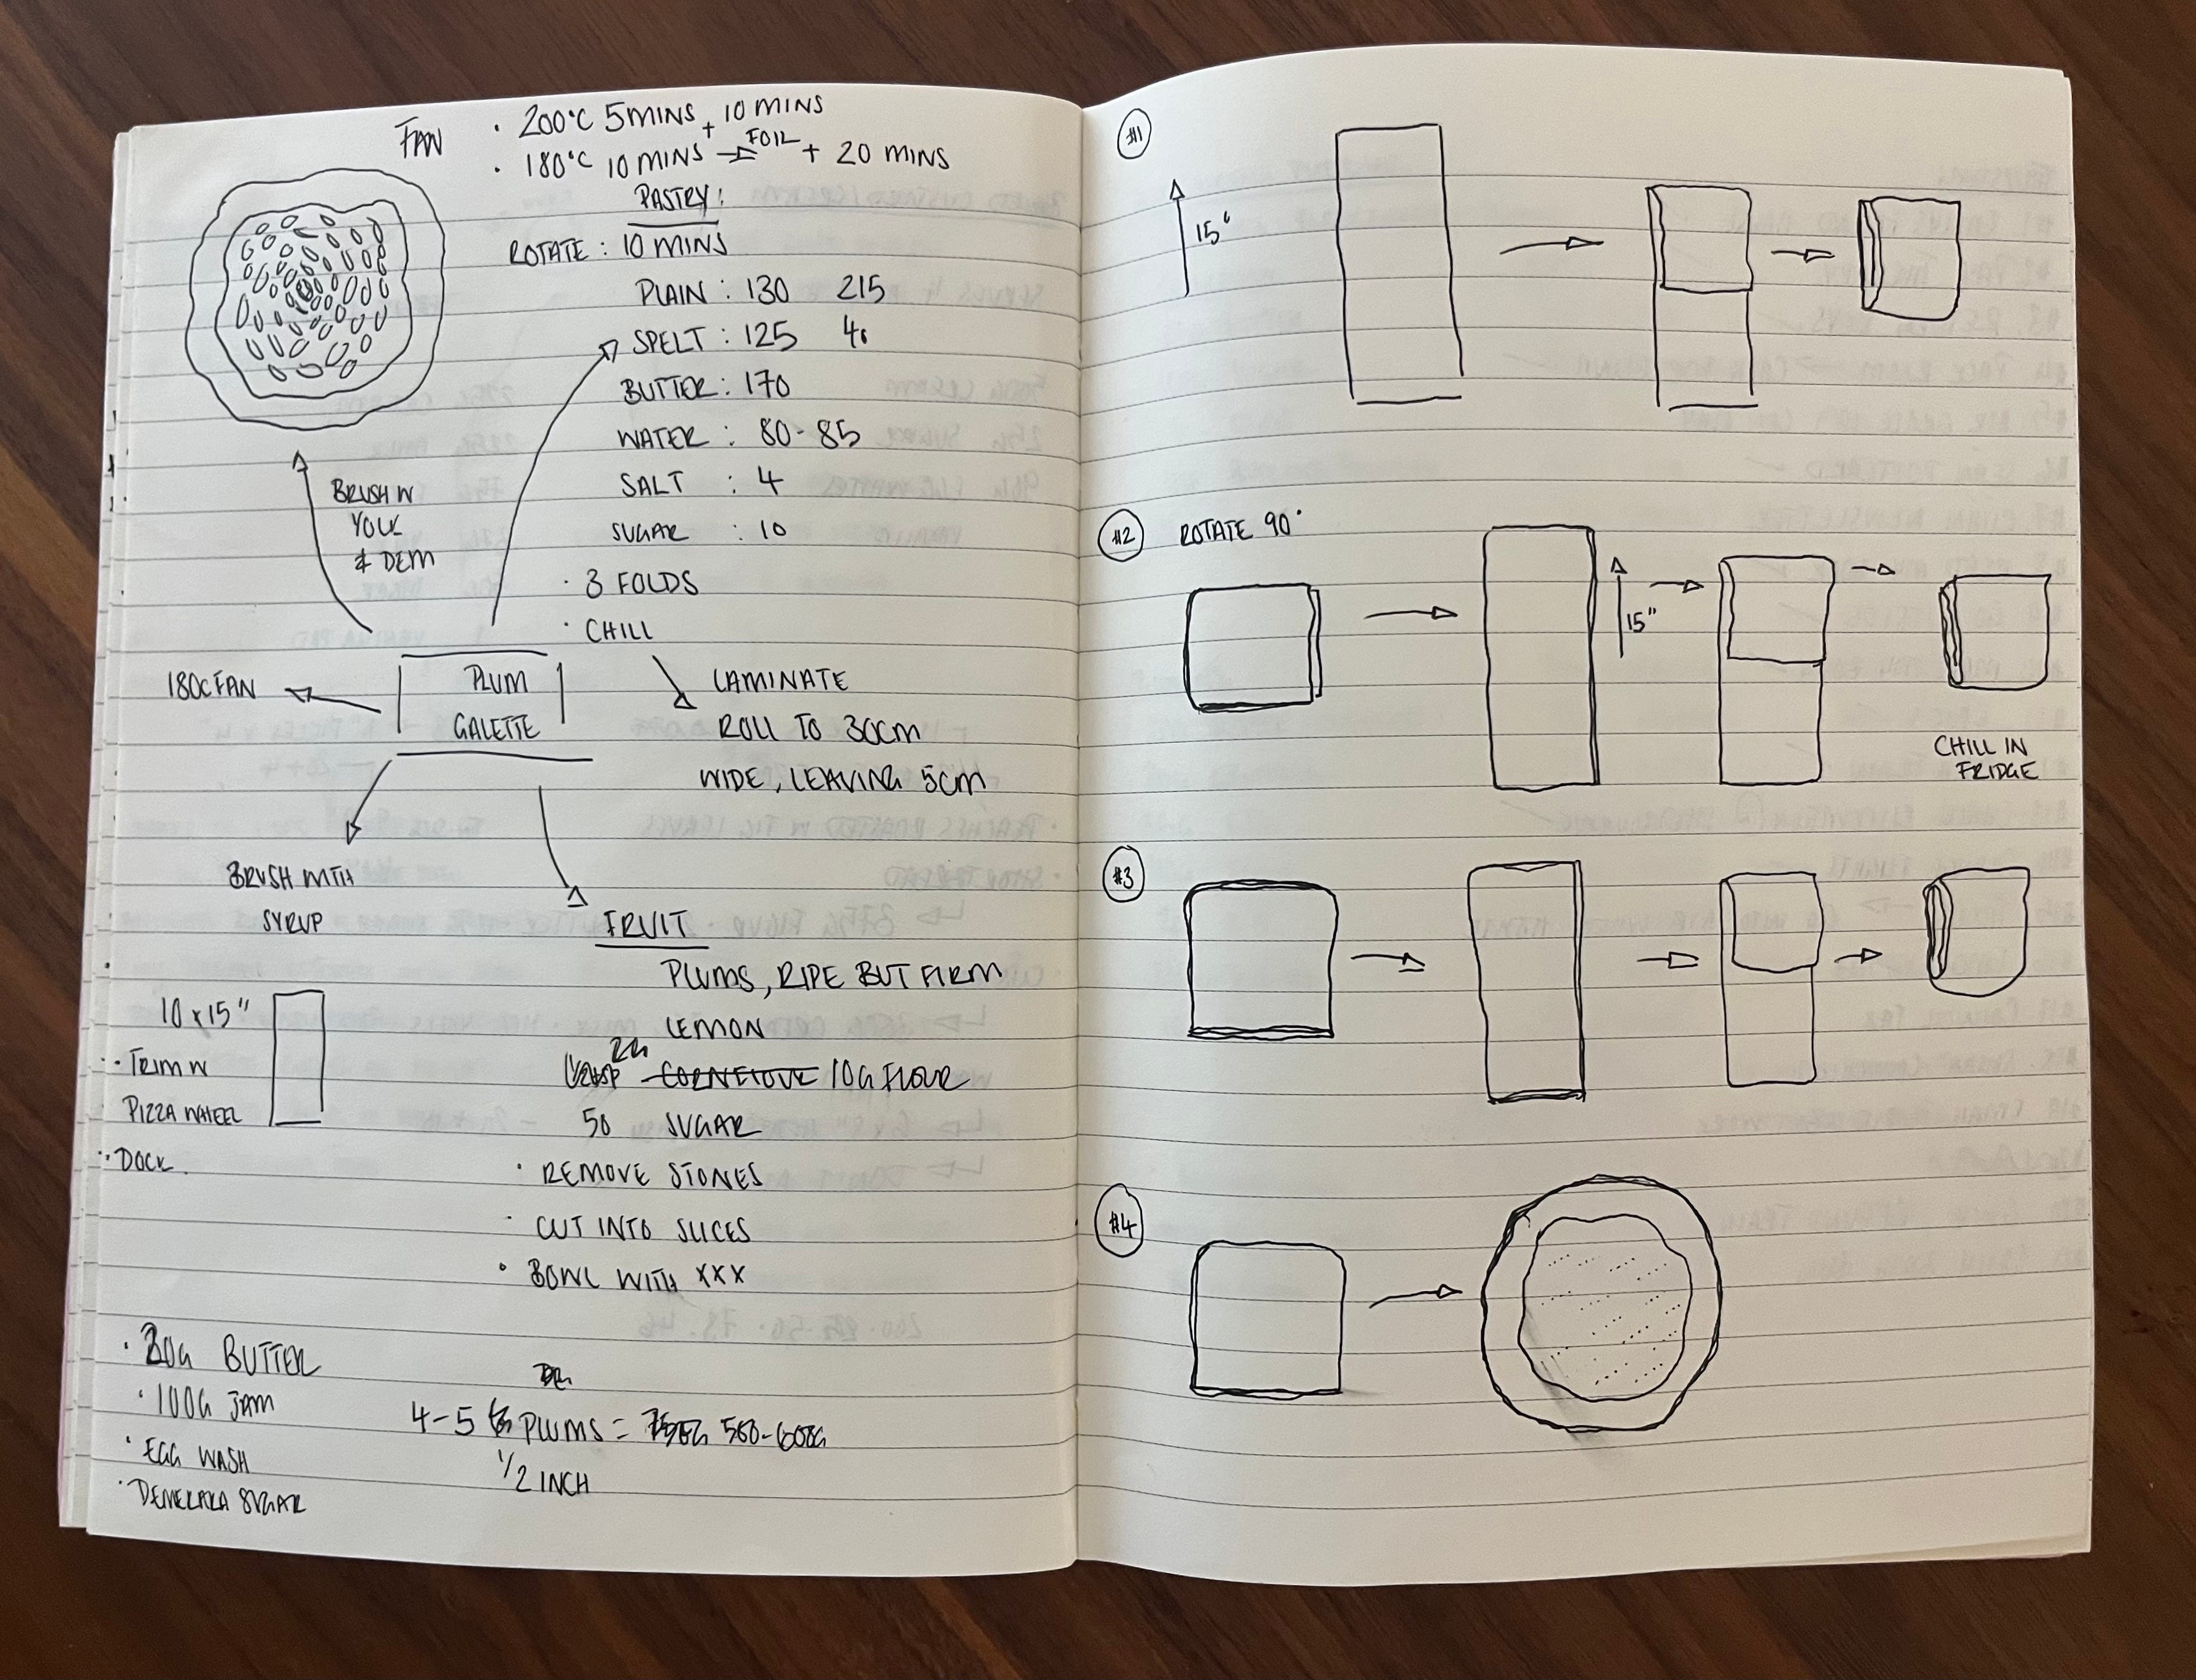 FAN
· 200°C 5 MINS + 10 MINS
· 180°C 10 MINS → FOIL + 20 MINS
PASTRY:
ROTATE : 10 MINS
PLAIN : 130 215
SPELT : 125
BUTTER : 170
WATER : 80-85
SALT : 4
SUGAR : 10
· 3 FOLDS
· CHILL
BRUSH W
YOLK
& DEM
180C FAN
PLUM
GALETTE
LAMINATE
ROLL TO 30CM
WIDE, LEAVING 5CM
BRUSH WITH
SYRUP
FRUIT
PLUMS, RIPE BUT FIRM
LEMON
CORNFLOUR 10G FLOUR
50 SUGAR
· REMOVE STONES
· CUT INTO SLICES
· BOWL WITH XXX
10 x 15"
· TRIM W
PIZZA WHEEL
· DOCK
· 20G BUTTER
· 100G JAM
· EGG WASH
· DEMERARA SUGAR
4-5 PLUMS = 500-600G
1/2 INCH
#1
15"
#2 ROTATE 90°
15"
CHILL IN
FRIDGE
#3
#4